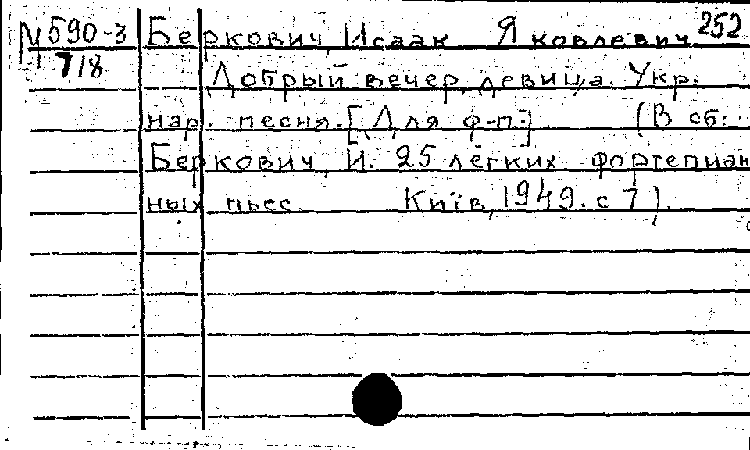 М590-3 Беркович, Исаак Яковлевич 252
718 Добрый вечер, девица. Укр.
нар. песня. [Для ф-п.] (В сб:
Беркович, И. 25 лёгких фортепиан
ных пьес. Київ, 1949. с 7).